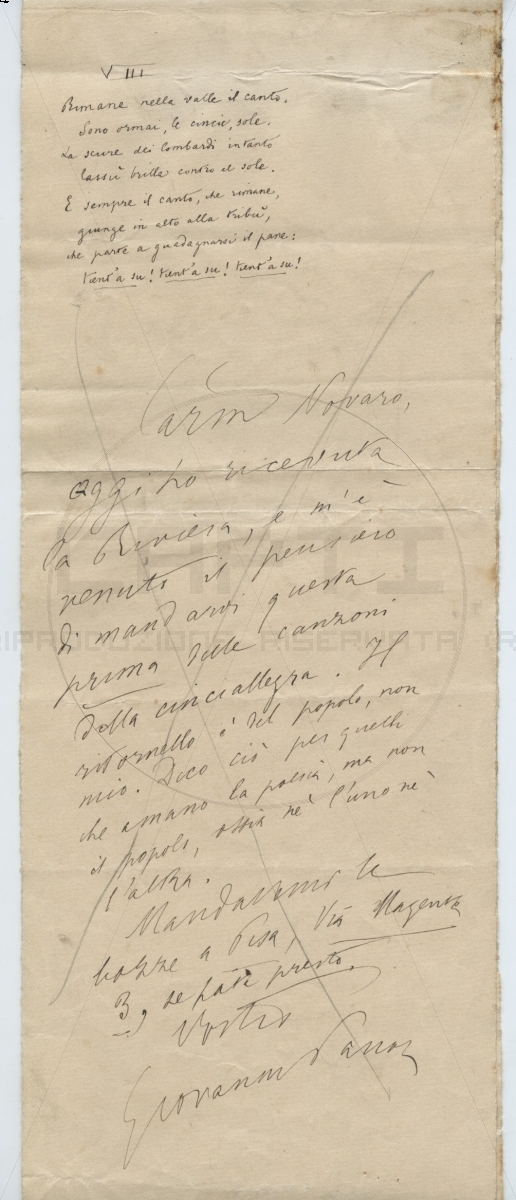 VIII
Rimane nella valle il canto.
Sono ormai, le cincie, sole.
La scure dei lombardi intanto
lassù brilla contro il sole.
E sempre il canto, che rimane,
giunge in alto alla tribù,
che parte a guadagnarsi il pane:
tient'a su! tient'a su! tient'a su!
Carm Novaro,
oggi ho ricevuta
la Riviera, e m'è
venuto il pensiero
di mandarvi questa
prima delle canzoni
della cinciallegra. Il
ritornello è del popolo, non
mio. Dico ciò per quelli
che amano la poesia, ma non
il popolo, ossia nè l'uno nè
l'altra.
Mandatemi le
bozze a Pisa, Via Magenta
3, se fate presto.
Vostro
Giovanni Pascoli
RIPRODUZIONE RISERVATA